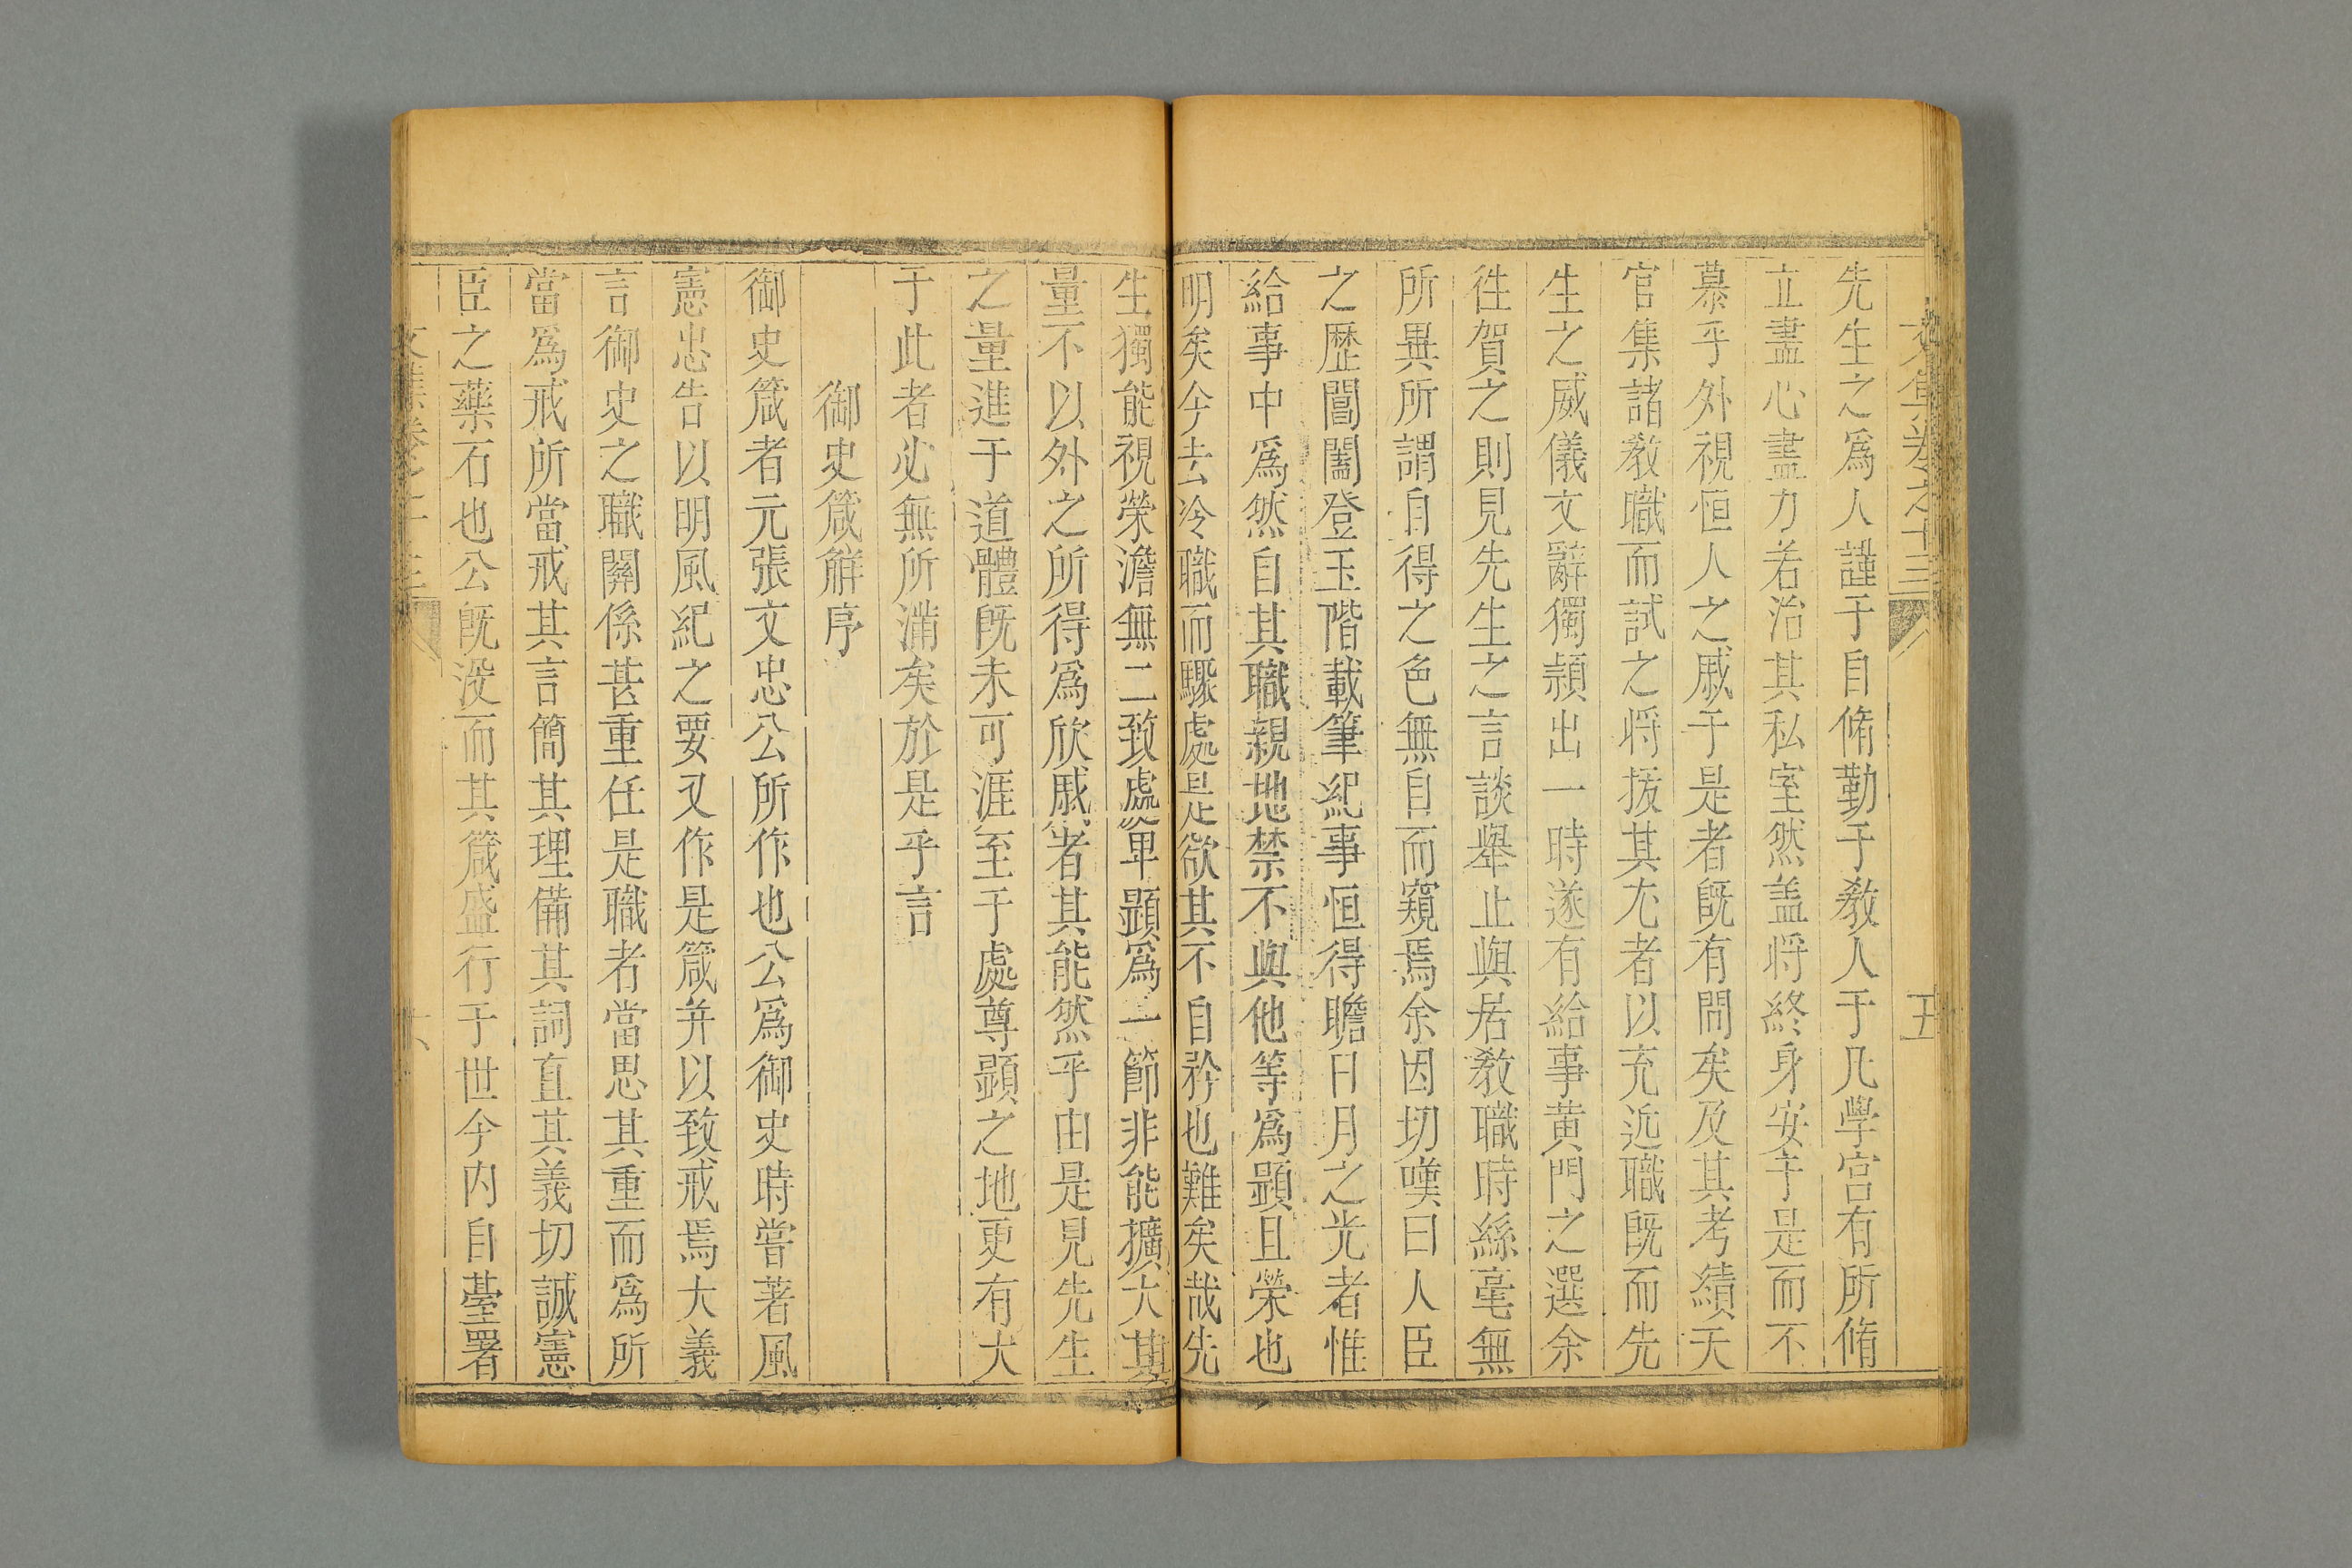 文集卷之十三
五
先生之爲人謹于自脩勤于教人于凡學宮有所脩
立盡心盡力若治其私室然盖将終身安于是而不
慕乎外視恒人之戚于是者旣有間矣及其考績天
官集諸教職而試之将拔其尤者以充近職旣而先
生之威儀文辭獨頴出一時遂有給事黄門之選余
徃賀之則見先生之言談舉止與居教職時絲毫無
所異所謂自得之色無自而窺焉余因切嘆曰人臣
之歴閶闔登玉階載筆紀事恒得瞻日月之光者惟
給事中爲然自其職親地禁不與他等爲顕且榮也
明矣今去冷職而驟處是欲其不自矜也難矣哉先
生獨能視榮澹無二致處卑顕爲一節非能擴大其
量不以外之所得爲欣戚者其能然乎由是見先生
之量進于道體旣未可涯至于處尊顕之地更有大
于此者必無所滿矣於是乎言
御史箴觧序
御史箴者元張文忠公所作也公爲御史時甞著風
憲忠告以明風紀之要又作是箴并以致戒焉大義
言御史之職關係甚重任是職者當思其重而爲所
當爲戒所當戒其言簡其理備其詞直其義切誠憲
臣之藥石也公旣没而其箴盛行于世今内自䑓署
文集卷之十三
六